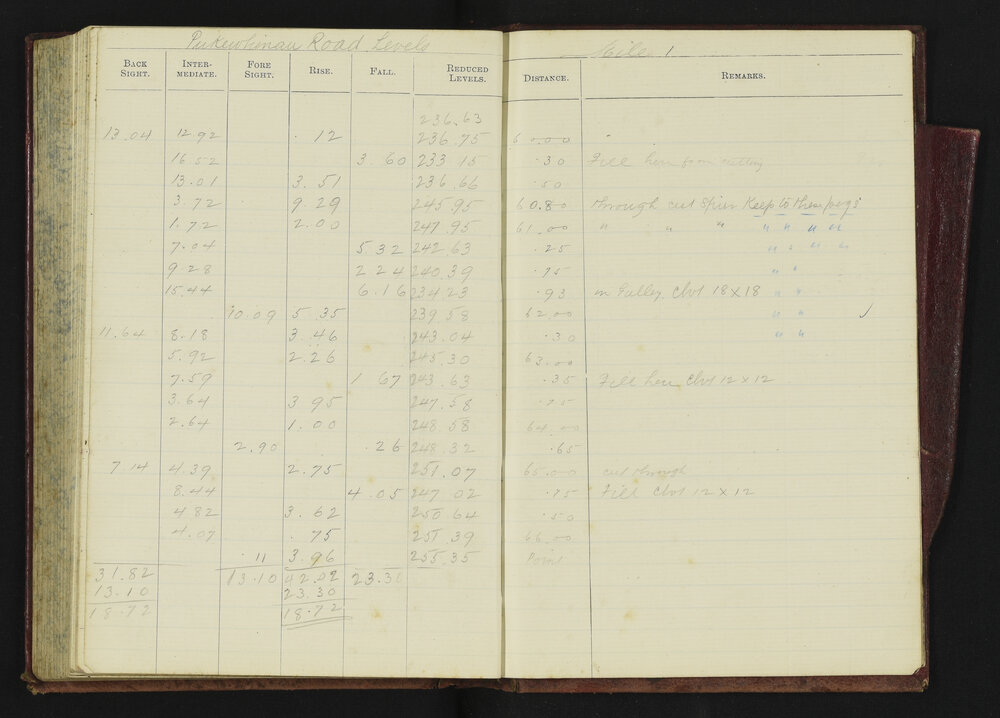 Pukewhinau Road Levels Mile 1
BACK SIGHT. INTER-MEDIATE. FORE SIGHT. RISE. FALL. REDUCED LEVELS. DISTANCE. REMARKS.
236.63
13.04 12.92 .12 236.75 60.00
16.52 3.60 233.15 .30 Fill here from cutting
13.01 3.51 236.66 .50
3.72 9.29 245.95 60.80 through cut spur Keep to these pegs
1.72 2.00 247.95 61.00 " " " " " " "
7.04 5.32 242.63 .25 " " " "
9.28 2.24 240.39 .75 " "
15.44 6.16 234.23 .93 in Gulley Clvt 18 x 18 " "
10.09 5.35 239.58 62.00 " "
11.64 8.18 3.46 243.04 .30 " "
5.92 2.26 245.30 63.00
7.59 1.67 243.63 .35 Fill here Clvt 12 x 12
3.64 3.95 247.58 .75
2.64 1.00 248.58 64.00
2.90 .26 248.32 .65
7.14 4.39 2.75 251.07 65.00 cut through
8.44 4.05 247.02 .75 Fill Clvt 12 x 12
4.82 3.62 250.64 .50
4.07 .75 251.39 66.00
.11 3.96 255.35 Point
31.82 13.10 42.02 23.30
13.10 23.30
18.72 18.72